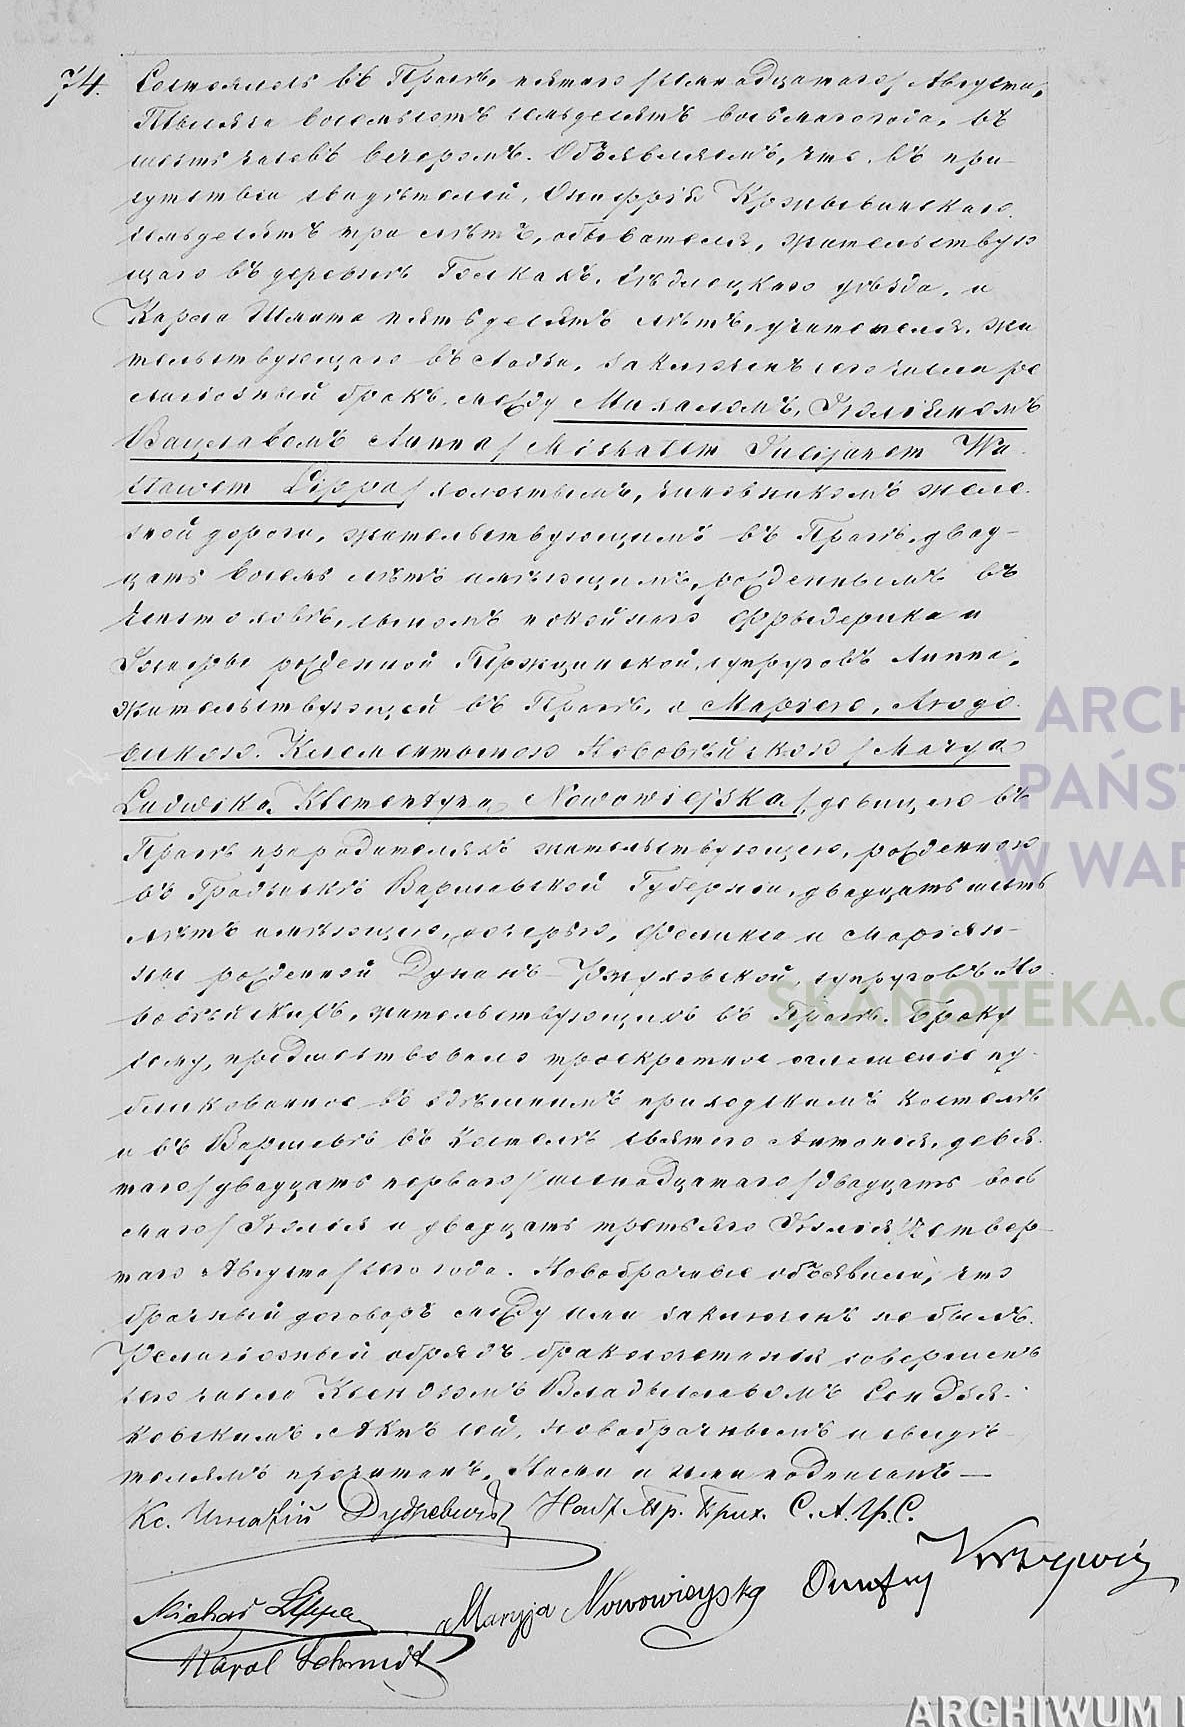 74. Состоялось въ Прагѣ, пятаго /семнадцатаго/ Августа,
Тысяча восемьсотъ семьдесятъ восьмаго года, въ
шесть часовъ вечеромъ. Объявляемъ, что, въ при-
сутствіи свидѣтелей, Онуфрія Кржывинскаго
семьдесятъ три лѣтъ, обывателя, жительствую
щаго въ деревнѣ Голкахъ, Сѣдлецкаго уѣзда, и
Кароля Шмита пятьдесятъ лѣтъ, учителя, жи
тельствующаго въ Лодзи, заключенъ сего числа ре
лигіозный бракъ, между Михаломъ, Юліяномъ
Вацлавомъ Липпа /Michałem Julijanem Wa
cławem Lippa/ холостымъ, чиновникомъ желѣ
зной дороги, жительствующимъ въ Прагѣ, двад-
цать восемь лѣтъ имѣющимъ, рожденнымъ въ
Ченстоховѣ, сыномъ покойнаго Фрыдерика и
Юзефы рожденной Пржщинской, супруговъ Липпа,
жительствующей въ Прагѣ, и Маріею, Людо
викою, Клементиною Нововѣйскою /Maryą
Ludwiką, Klementyną Nowowiejską/, дѣвицею въ
Прагѣ при родителяхъ жительствующею, рожденною
въ Гродзискѣ Варшавской Губерніи, двадцать шесть
лѣтъ имѣющею, дочерью, Феликса и Маріян-
ны рожденной Дунинъ-Жуховской, супруговъ Но
вовѣйскихъ, жительствующихъ въ Прагѣ. Браку
сему, предшествовало троекратное оглашеніе пу
бликованное въ здѣшнемъ приходскомъ костелѣ
и въ Варшавѣ въ костелѣ святаго Антонія, девя
таго /двадцать перваго/ шестнадцатаго /двадцать вось
маго/ Іюля и двадцать третьяго Іюля /четвер-
таго Августа/ сего года. Новобрачные объявили, что
брачный договоръ между ими заключенъ не былъ.
Религіозный обрядъ бракосочетанія совершенъ
сего числа Ксендзомъ Владыславомъ Сендзя-
ковскимъ. Актъ сей, новобрачнымъ и свидѣ
телямъ прочитанъ, Нами и ими подписанъ —
Кс. Игнатій Дудревичъ Наст. Пр. Прих. С. А. Гр. С.
Michał Lippa Maryja Nowowieyska Onufry Krzywiń
Karol Schmidt
ARCHIWUM
PAŃST
W WAR
SKANOTEKA.G
ARCHIWUM